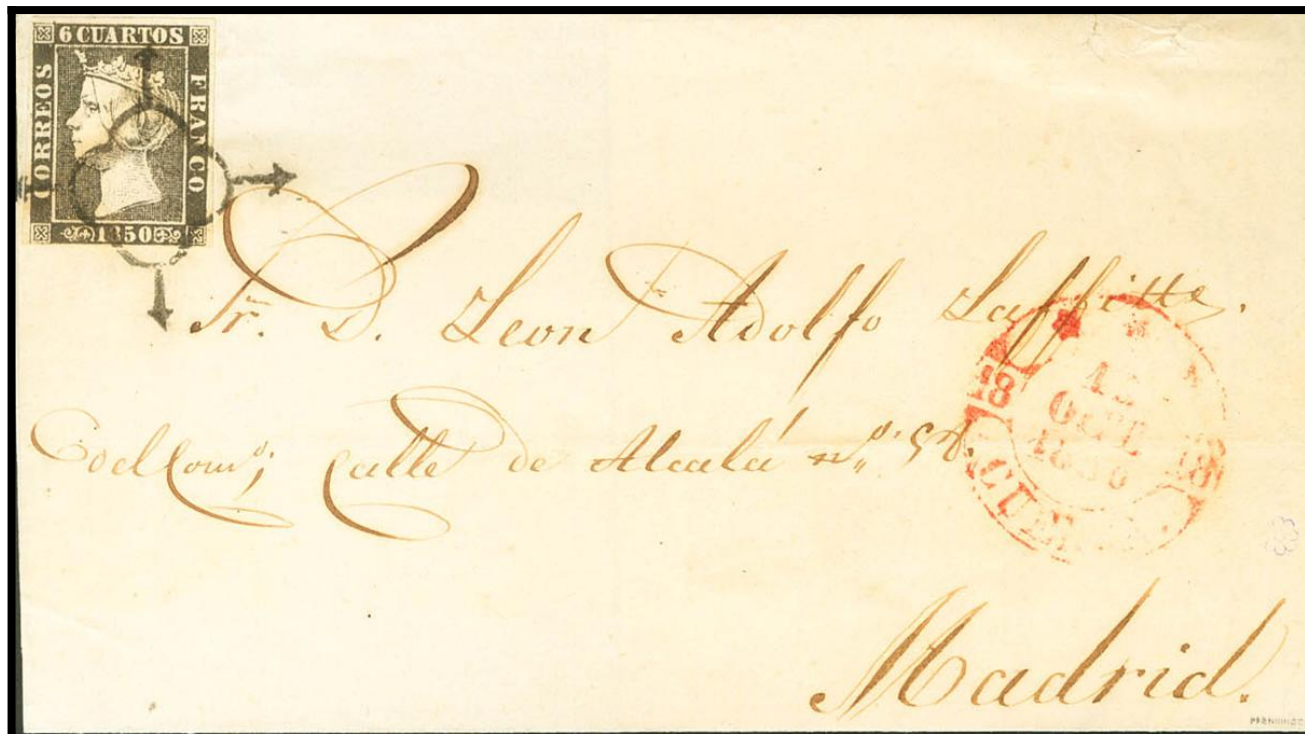 6 CUARTOS
CORREOS
FRANCO
1850
Sr. D. Leon Adolfo Laffitte.
Calle de Alcalá nº
18
OCT.
18
Madrid.